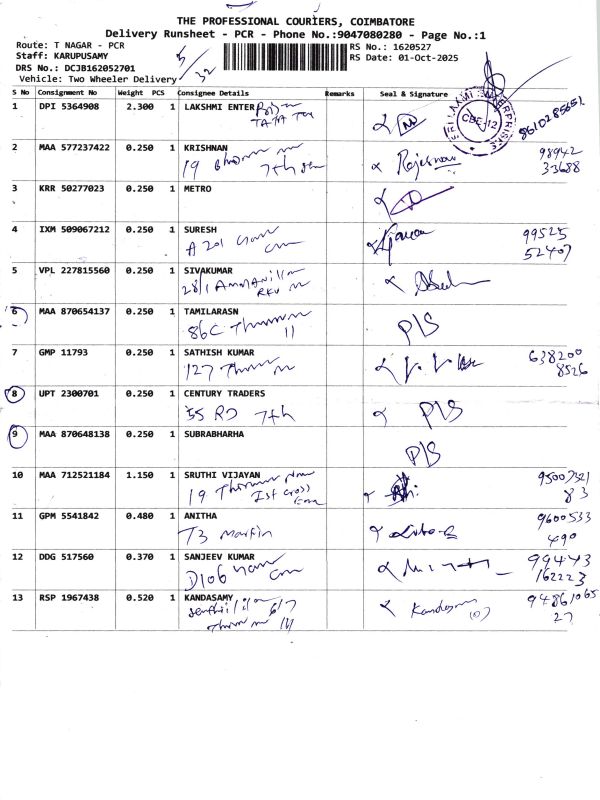 THE PROFESSIONAL COURIERS, COIMBATORE
Delivery Runsheet - PCR - Phone No.:9047080280 - Page No.:1
Route: T NAGAR - PCR
RS No.: 1620527
Staff: KARUPUSAMY
RS Date: 01-Oct-2025
DRS No.: DCJB162052701
Vehicle: Two Wheeler Delivery
5/32
S No Consignment No Weight PCS Consignee Details Remarks Seal & Signature
1 DPI 5364908 2.300 1 LAKSHMI ENTER
TATA
SRI LAXMI ENTERPRISES CBE-12
8610285651
2 MAA 577237422 0.250 1 KRISHNAN
19 7th
98942
33688
3 KRR 50277023 0.250 1 METRO
4 IXM 509067212 0.250 1 SURESH
A 201
99525
52407
5 VPL 227815560 0.250 1 SIVAKUMAR
28/1
6 MAA 870654137 0.250 1 TAMILARASN
86C 11
P/S
7 GMP 11793 0.250 1 SATHISH KUMAR
127
638200
8526
8 UPT 2300701 0.250 1 CENTURY TRADERS
55 RD 7th
P/S
9 MAA 870648138 0.250 1 SUBRABHARHA
P/S
10 MAA 712521184 1.150 1 SRUTHI VIJAYAN
19 1st Cross
95007321
83
11 GPM 5541842 0.480 1 ANITHA
T3 martin
9600533
490
12 DDG 517560 0.370 1 SANJEEV KUMAR
D106
99443
162223
13 RSP 1967438 0.520 1 KANDASAMY
6/7
Kandasamy
94861065
27